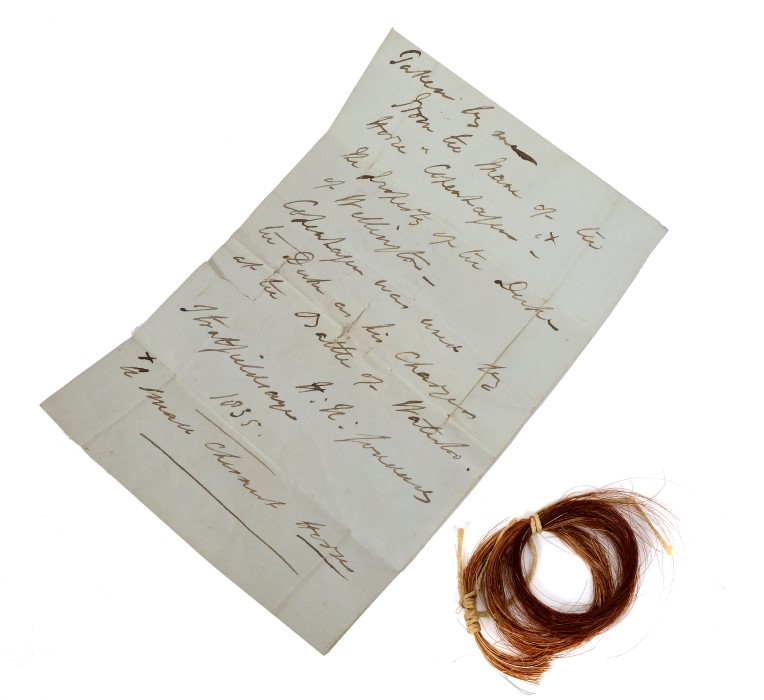 Taken by me
from the Mane of the
Horse - Copenhagen x -
the property of the Duke
of Wellington -
Copenhagen was used by
the Duke as his Charger
at the Battle of Waterloo.
H. N.
Strathfieldsaye
1835.
x
A small chesnut Horse